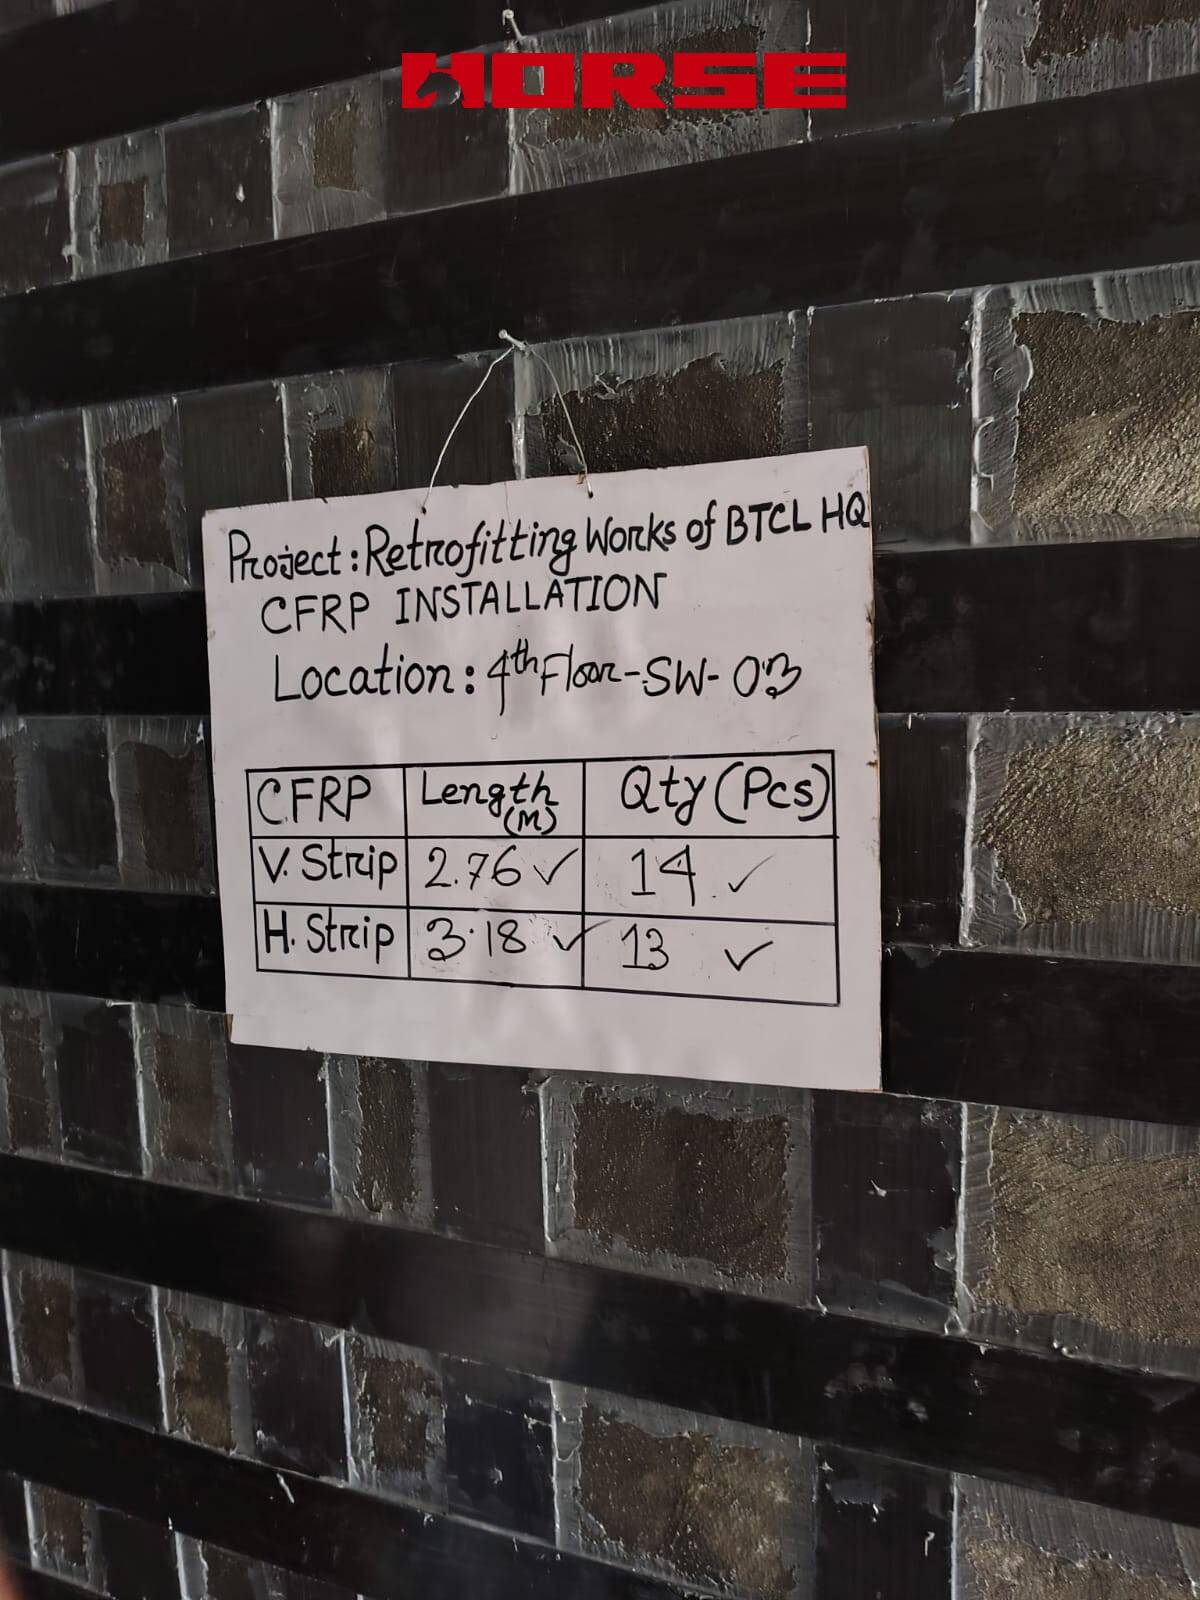 HORSE
Project: Retrofitting Works of BTCL HQ
CFRP INSTALLATION
Location: 4th Floor-SW-03
CFRP Length (M) Qty (Pcs)
V. Strip 2.76 ✓ 14 ✓
H. Strip 3.18 ✓ 13 ✓